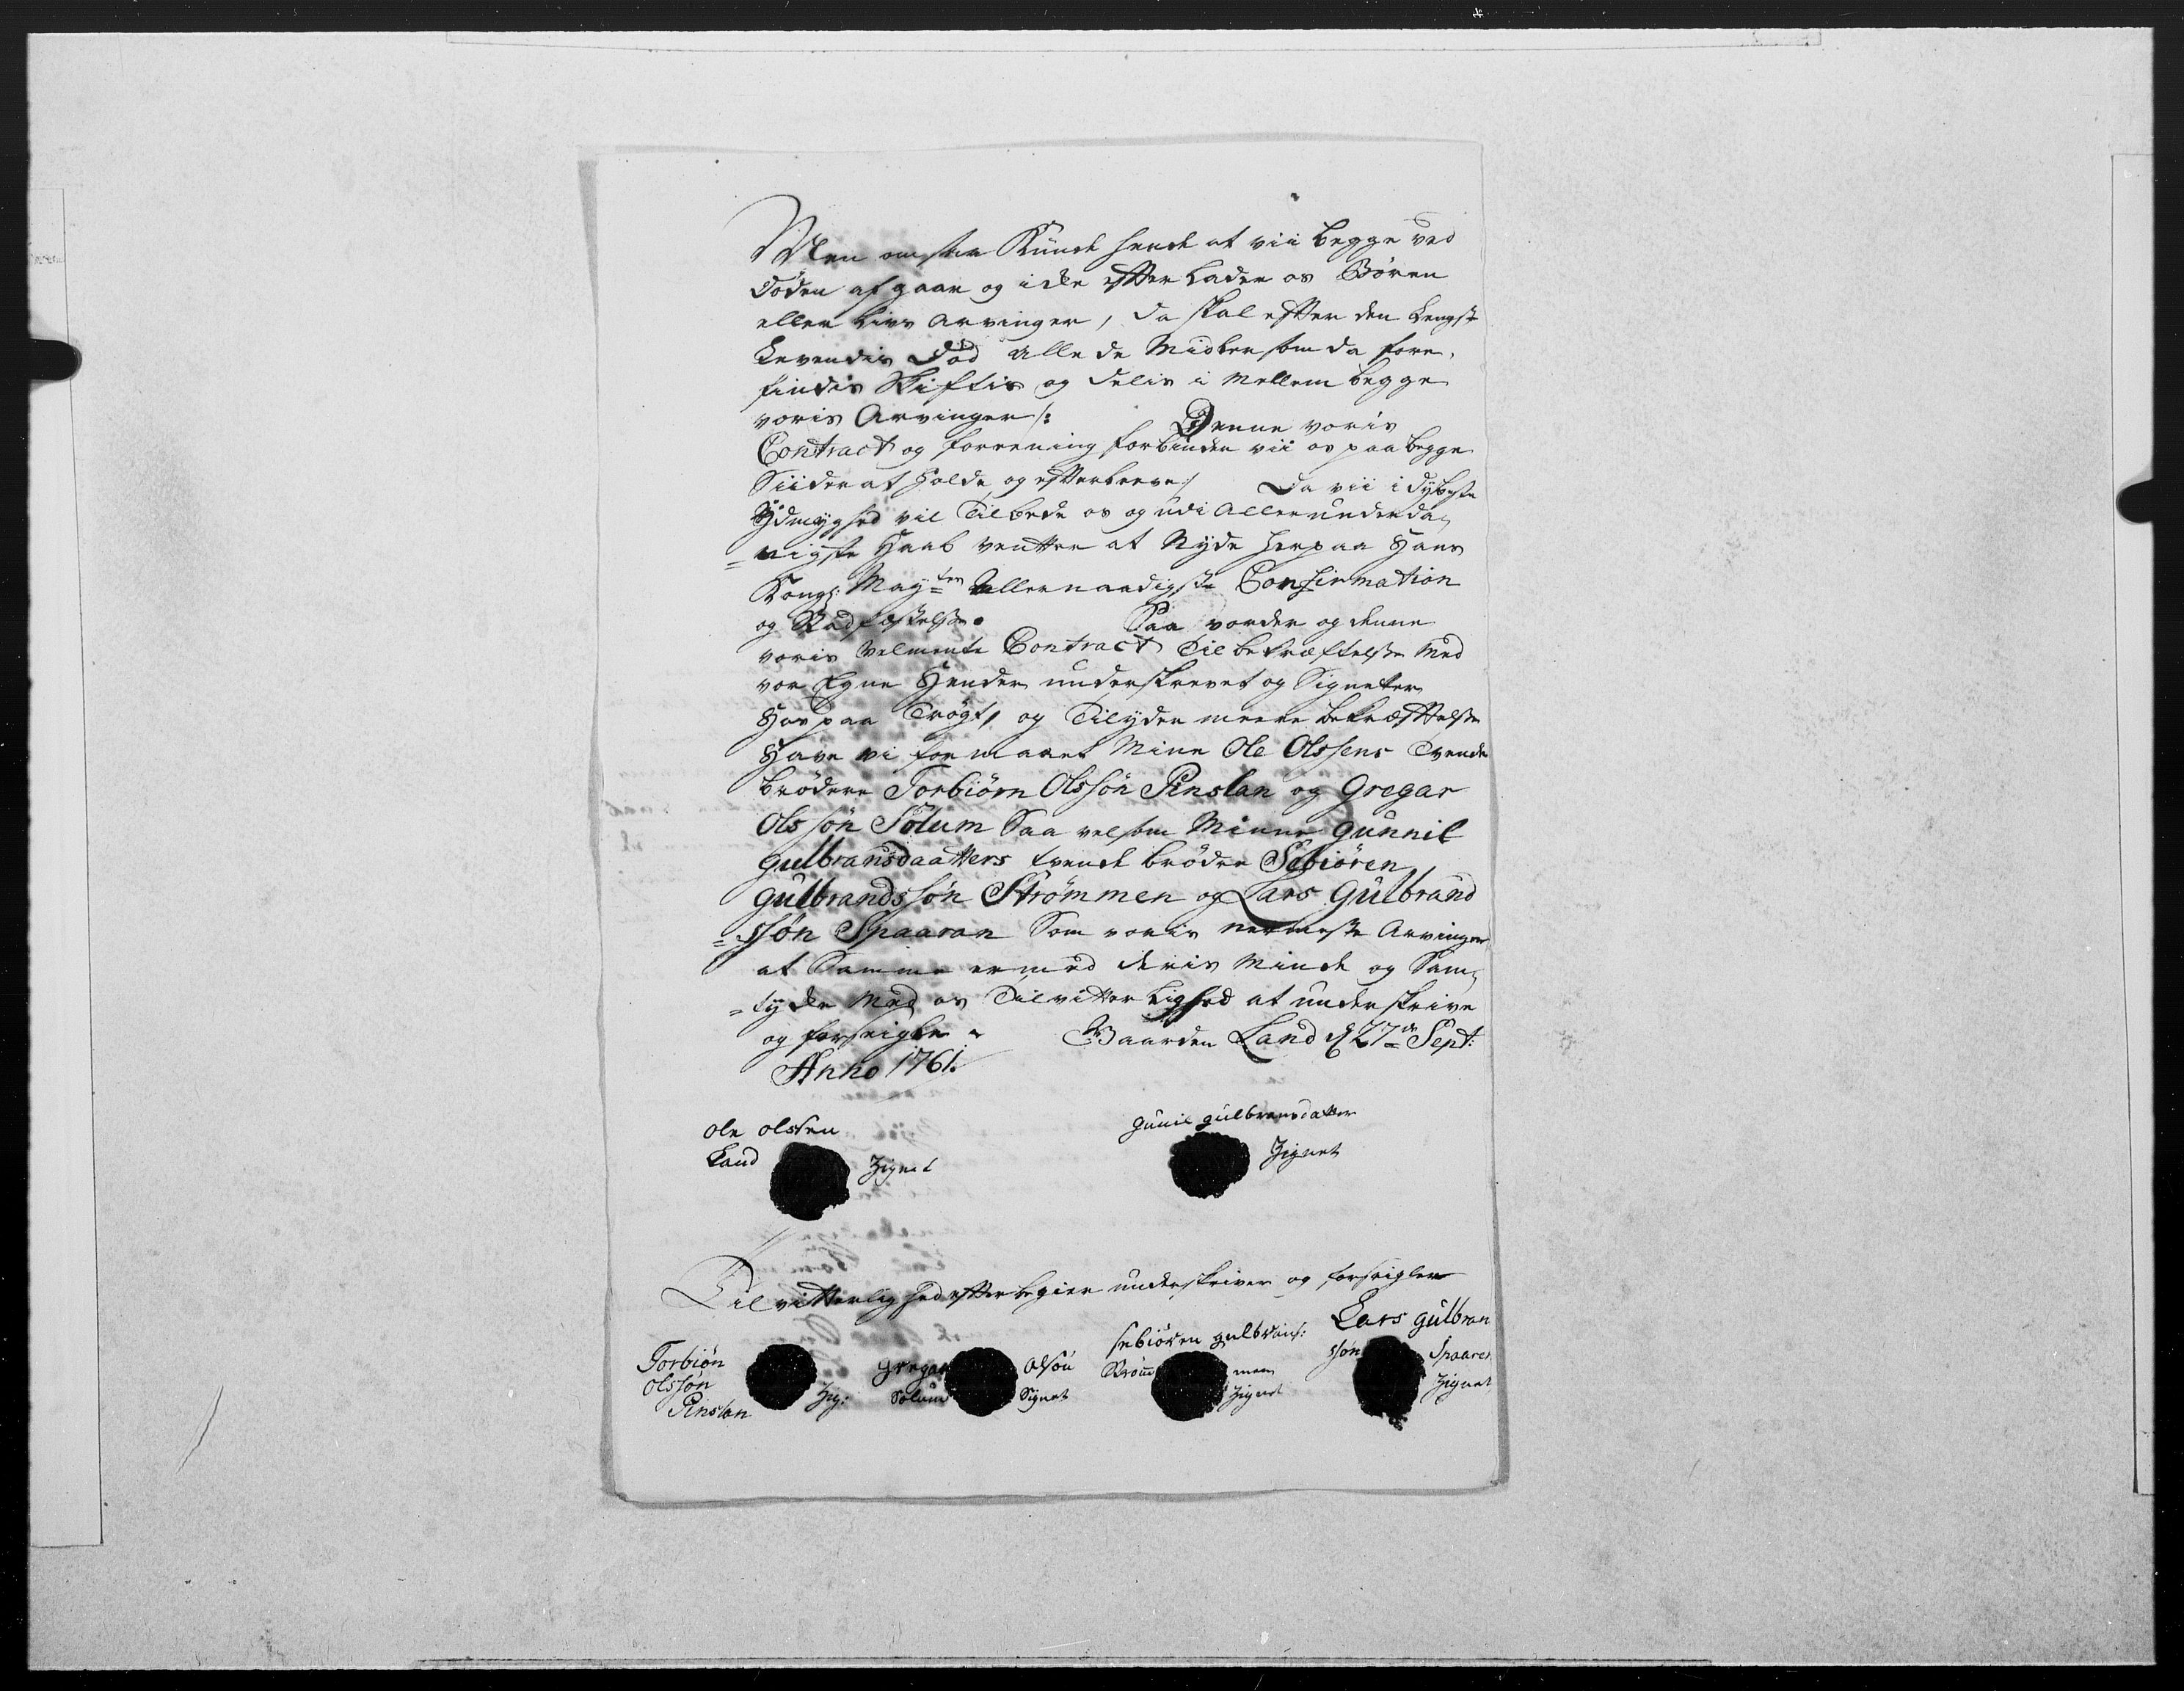 Men om saa Kunde hende at vii begge ved
Døden afgaar og icke efterlader os Børen
eller Livs Arvinger, da skal efter den Lengst
Levendis Død alle de Midler som da fore,
findis Skiftis og delis i Mellem begge
voris Arvinger /: Denne voris
Contract og forrening forbinder vii os paa begge
Siider at Holde og efterleve / Da vii i dybeste
Ydmyghed vil Tilbede os og udi Allerunderda,
=nigste Haab ventter at Nyde herpaa Hans
Kongl: May=ten Allernaadigste Confirmation
og Stadfæstelse. Saa vorder og denne
voris Velmente Contract Til bekræftelse Med
vor Egne Hender underskrevet og Signeter
Hos paa Trøgt, og Tilyder meere bekræfttelse
Have vi formaaet Mine Ole Olssens Tvende
brødere Torbiørn Olssøn Pinslan og Gregar
Olssøn Solum Saa velsom Minne Gunnil
Gulbransdaatters tvende brødre Sebiøren
Gulbrandssøn Strømmen og Lars Gulbrand
=ssøn Spaaran Som voris nermeste Arvinger
at Samme er med deris Minde og Sam,
=tyde Med os Tilvitterlighed at underskrive
og forseigle Gaarden Land d 27de Sept:
Anno 1761.
Ole olssen Gunil gulbransdatter
Land Zignet Zignet
Til vitterlighed efter begier underskriver og forseigler
Lars gulbran
Sebiøren gulbrans: ssøn Spaaren
Torbiøn Gregar Olsøn Strøm men Zignet
olssøn Zig: Solum Signet Zignet
Pinslan